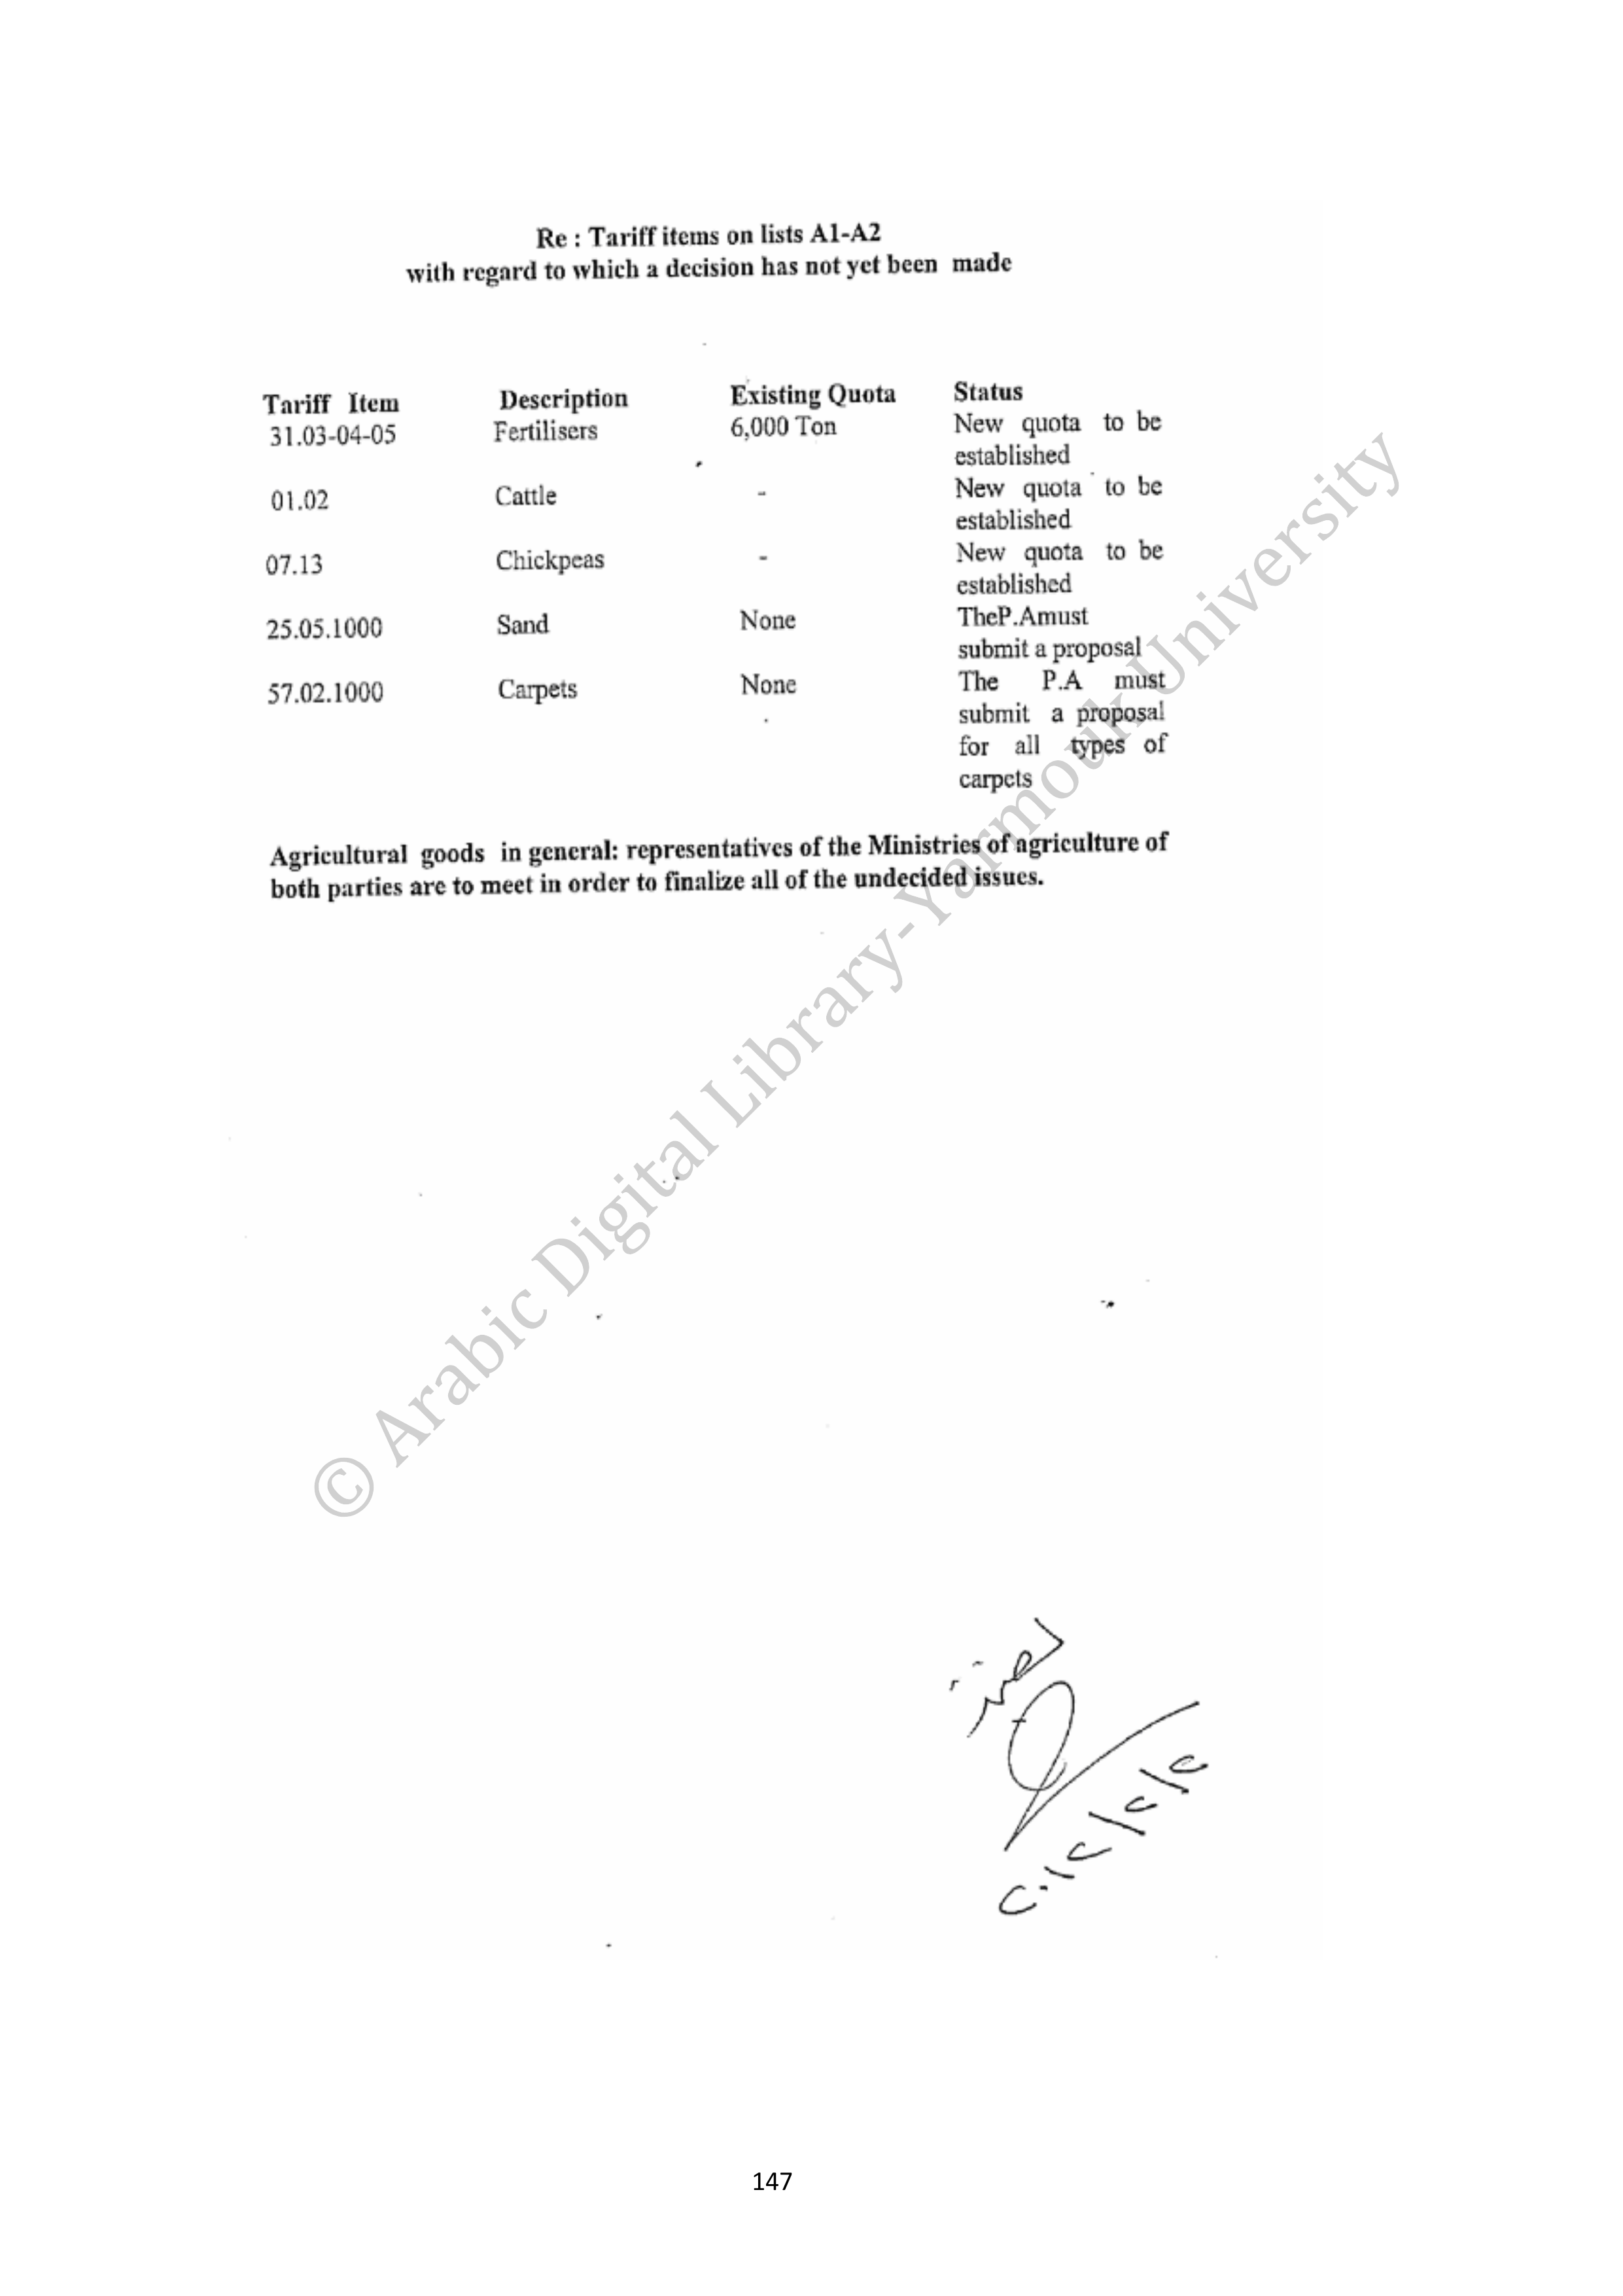 Re : Tariff items on lists A1-A2
with regard to which a decision has not yet been made
Tariff Item Description Existing Quota Status
31.03-04-05 Fertilisers 6,000 Ton New quota to be
established
01.02 Cattle - New quota to be
established
07.13 Chickpeas - New quota to be
established
25.05.1000 Sand None TheP.Amust
submit a proposal
57.02.1000 Carpets None The P.A must
submit a proposal
for all types of
carpets
Agricultural goods in general: representatives of the Ministries of agriculture of
both parties are to meet in order to finalize all of the undecided issues.
© Arabic Digital Library-Yarmouk University
147